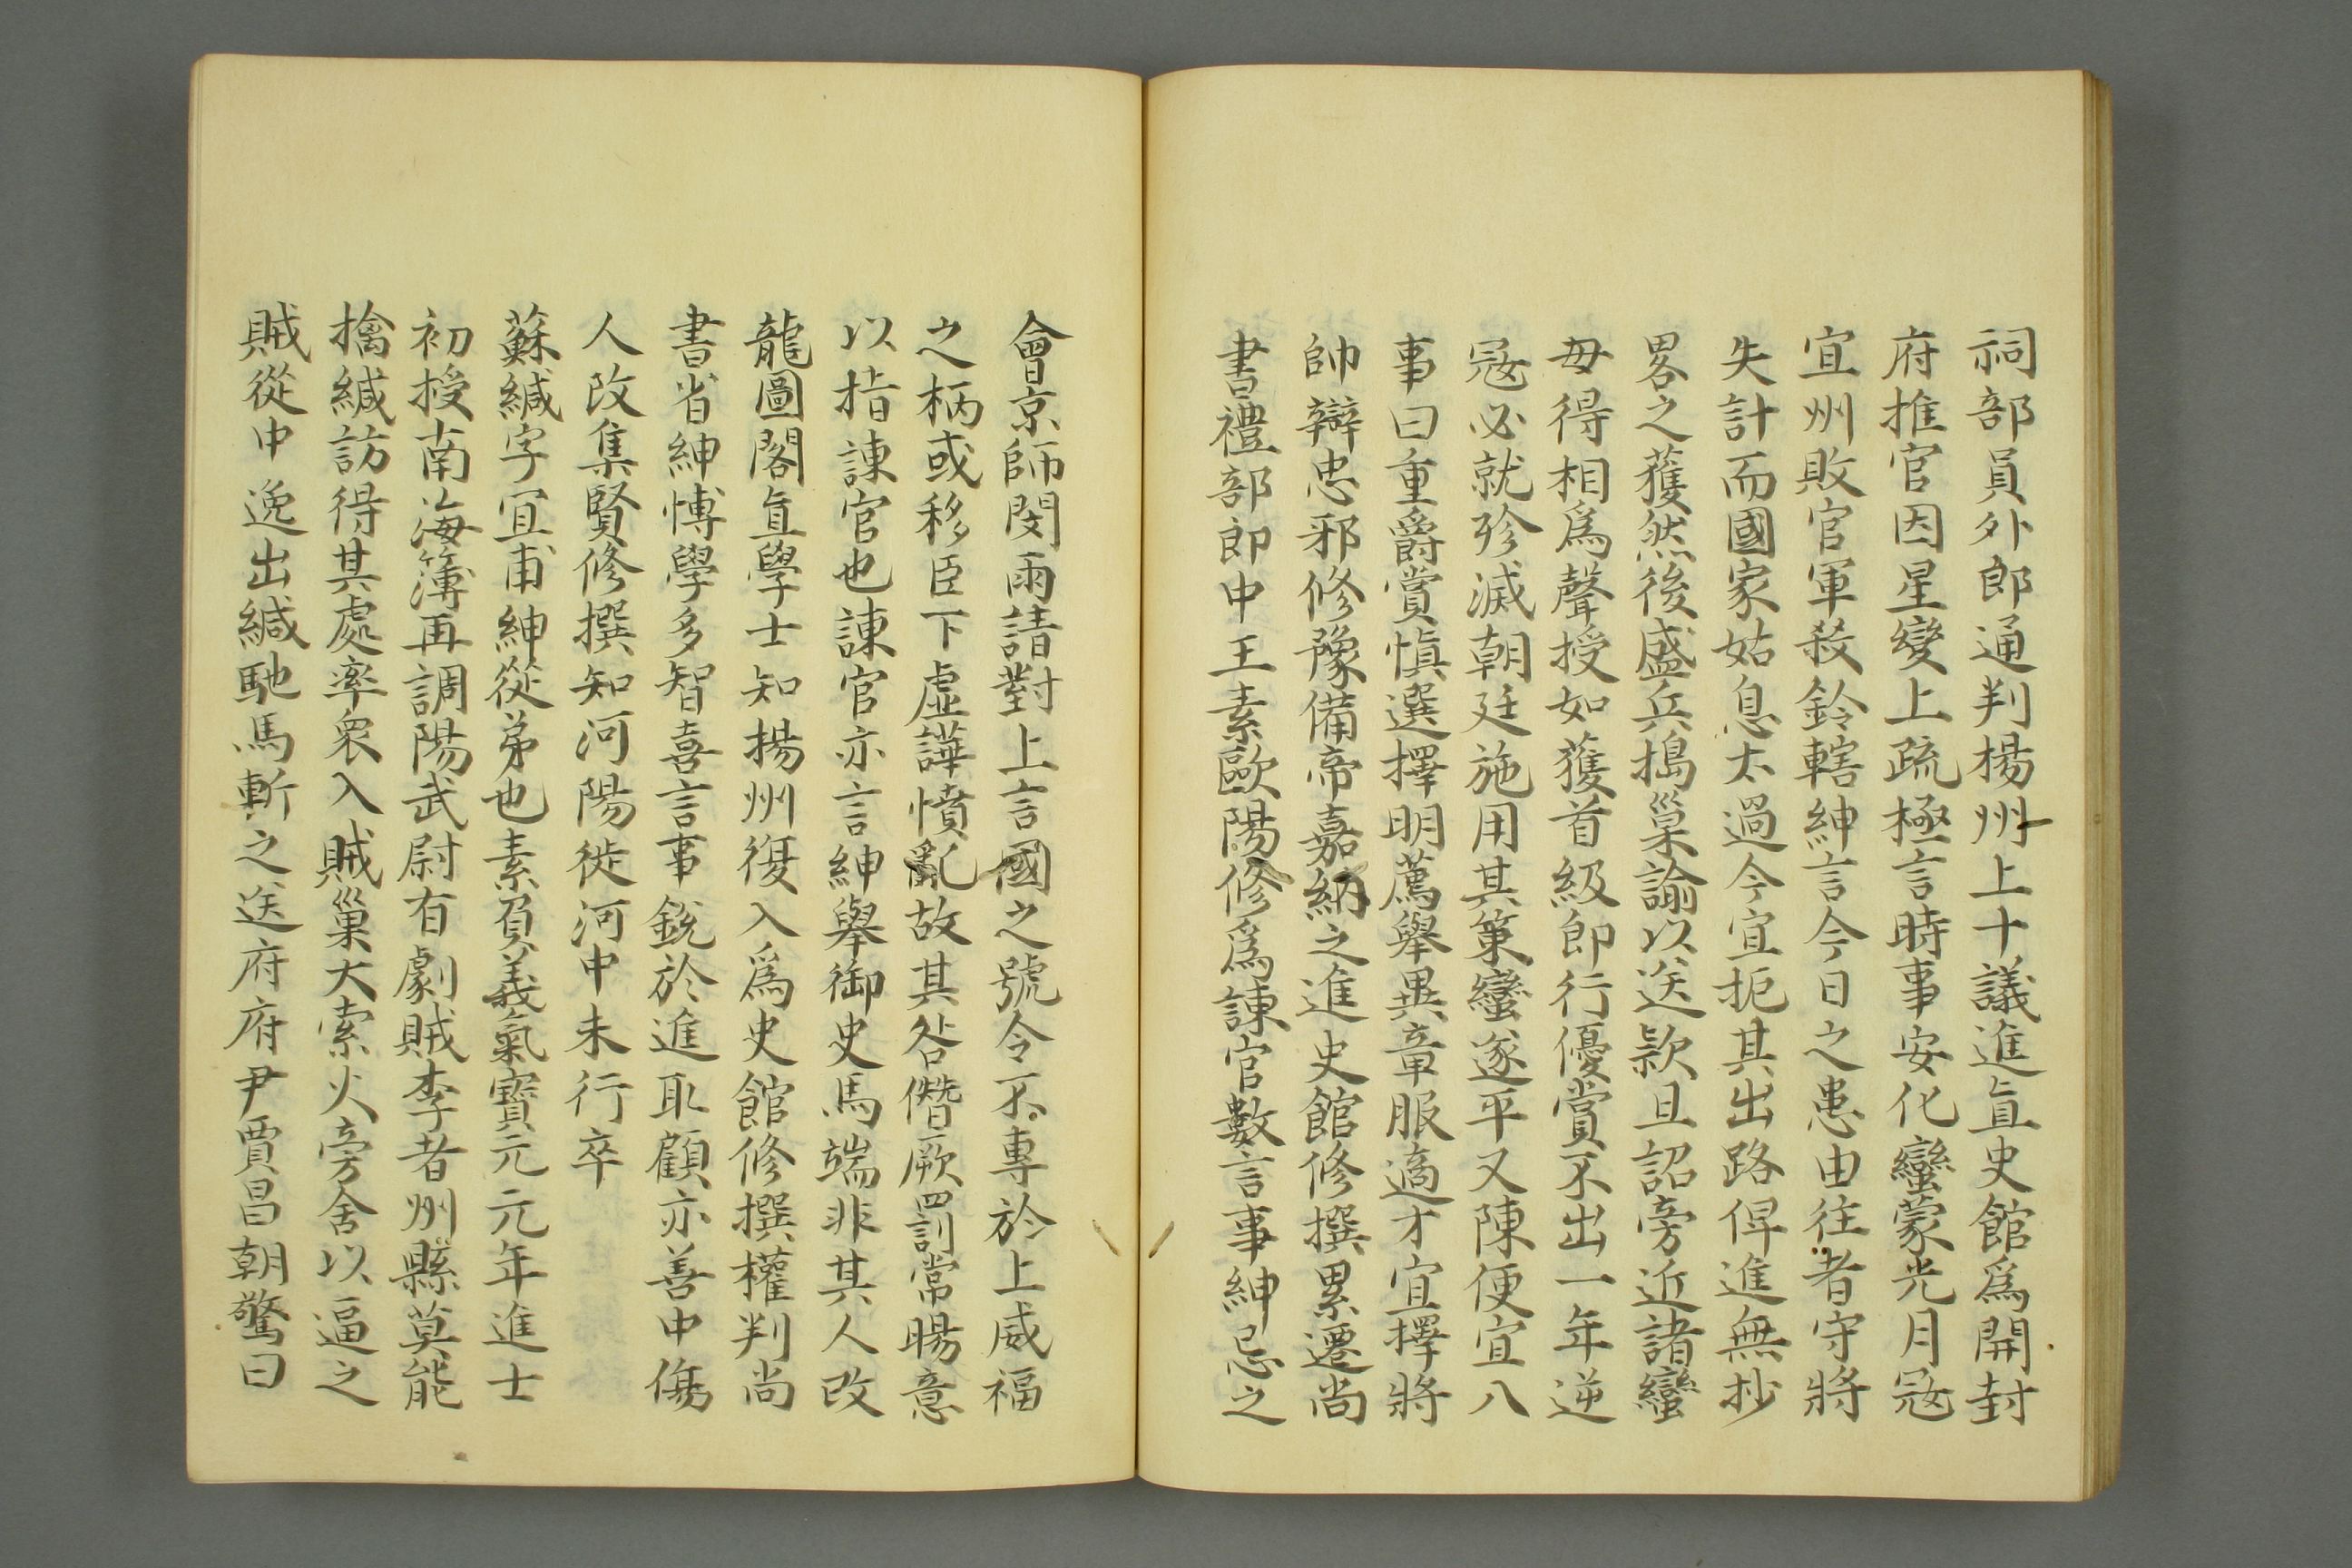 祠部員外郎通判揚州上十議進直史館爲開封
府推官因星變上疏極言時事安化蠻蒙光月冦
宜州敗官軍殺鈐轄紳言今日之患由往者守將
失計而國家姑息太過今宜扼其出路俾進無抄
畧之獲然後盛兵搗巢諭以送欵且詔旁近諸蠻
毋得相爲聲授如獲首級即行優賞不出一年逆
冦必就殄滅朝廷施用其策蠻遂平又陳便宜八
事曰重爵賞慎選擇明薦舉異章服適才宜擇將
帥辯忠邪修豫備帝嘉納之進史館修撰累遷尚
書禮部郎中王素歐陽修爲諫官數言事紳忌之
會京師閔雨請對上言國之號令不專於上威福
之柄或移臣下虛譁憤亂故其咎僭厥罰常暘意
以指諫官也諫官亦言紳舉御史馬端非其人改
龍圖閣直學士知揚州復入爲史館修撰權判尚
書省紳博學多智喜言事銳於進取顧亦善中傷
人改集賢修撰知河陽徙河中未行卒
蘇緘字宜甫紳從弟也素負義氣寶元元年進士
初授南海簿再調陽武尉有劇賊李者州縣莫能
擒緘訪得其處率衆入賊巢大索火旁舍以逼之
賊從中逸出緘馳馬斬之送府府尹賈昌朝驚曰